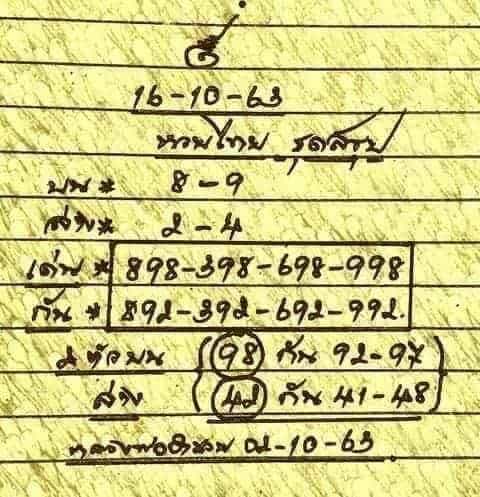 16-10-63
หวยไทย ชุดสรุป
บน * 8-9
ล่าง * 2-4
เด่น * 898-398-698-998
กัน * 892-392-692-992.
2 ตัวบน (98 กัน 92-97)
ล่าง (42 กัน 41-48)
02-10-63